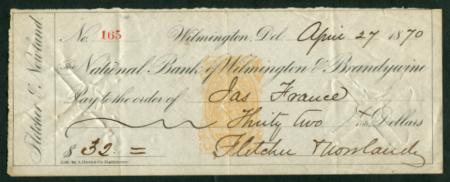 Fletcher & Newland
No. 165 Wilmington, Del April 27 1870
The National Bank of Wilmington & Brandywine
Pay to the order of Jas France
Thirty two Dollars
$ 32 =
Fletcher & Newland